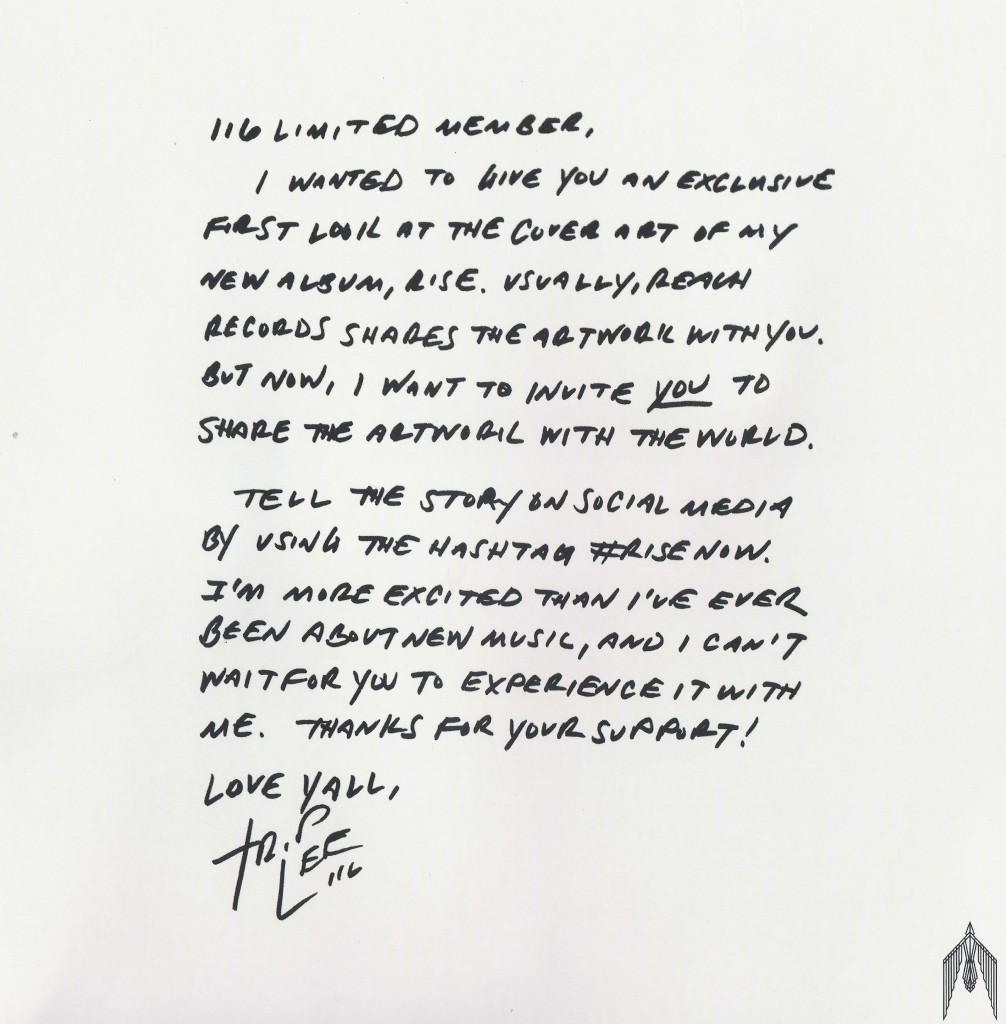 116 LIMITED MEMBER,
I WANTED TO GIVE YOU AN EXCLUSIVE
FIRST LOOK AT THE COVER ART OF MY
NEW ALBUM, RISE. USUALLY, REACH
RECORDS SHARES THE ARTWORK WITH YOU.
BUT NOW, I WANT TO INVITE YOU TO
SHARE THE ARTWORK WITH THE WORLD.
TELL THE STORY ON SOCIAL MEDIA
BY USING THE HASHTAG #RISENOW.
I'M MORE EXCITED THAN I'VE EVER
BEEN ABOUT NEW MUSIC, AND I CAN'T
WAIT FOR YOU TO EXPERIENCE IT WITH
ME. THANKS FOR YOUR SUPPORT!
LOVE YALL,
TRIP LEE
116